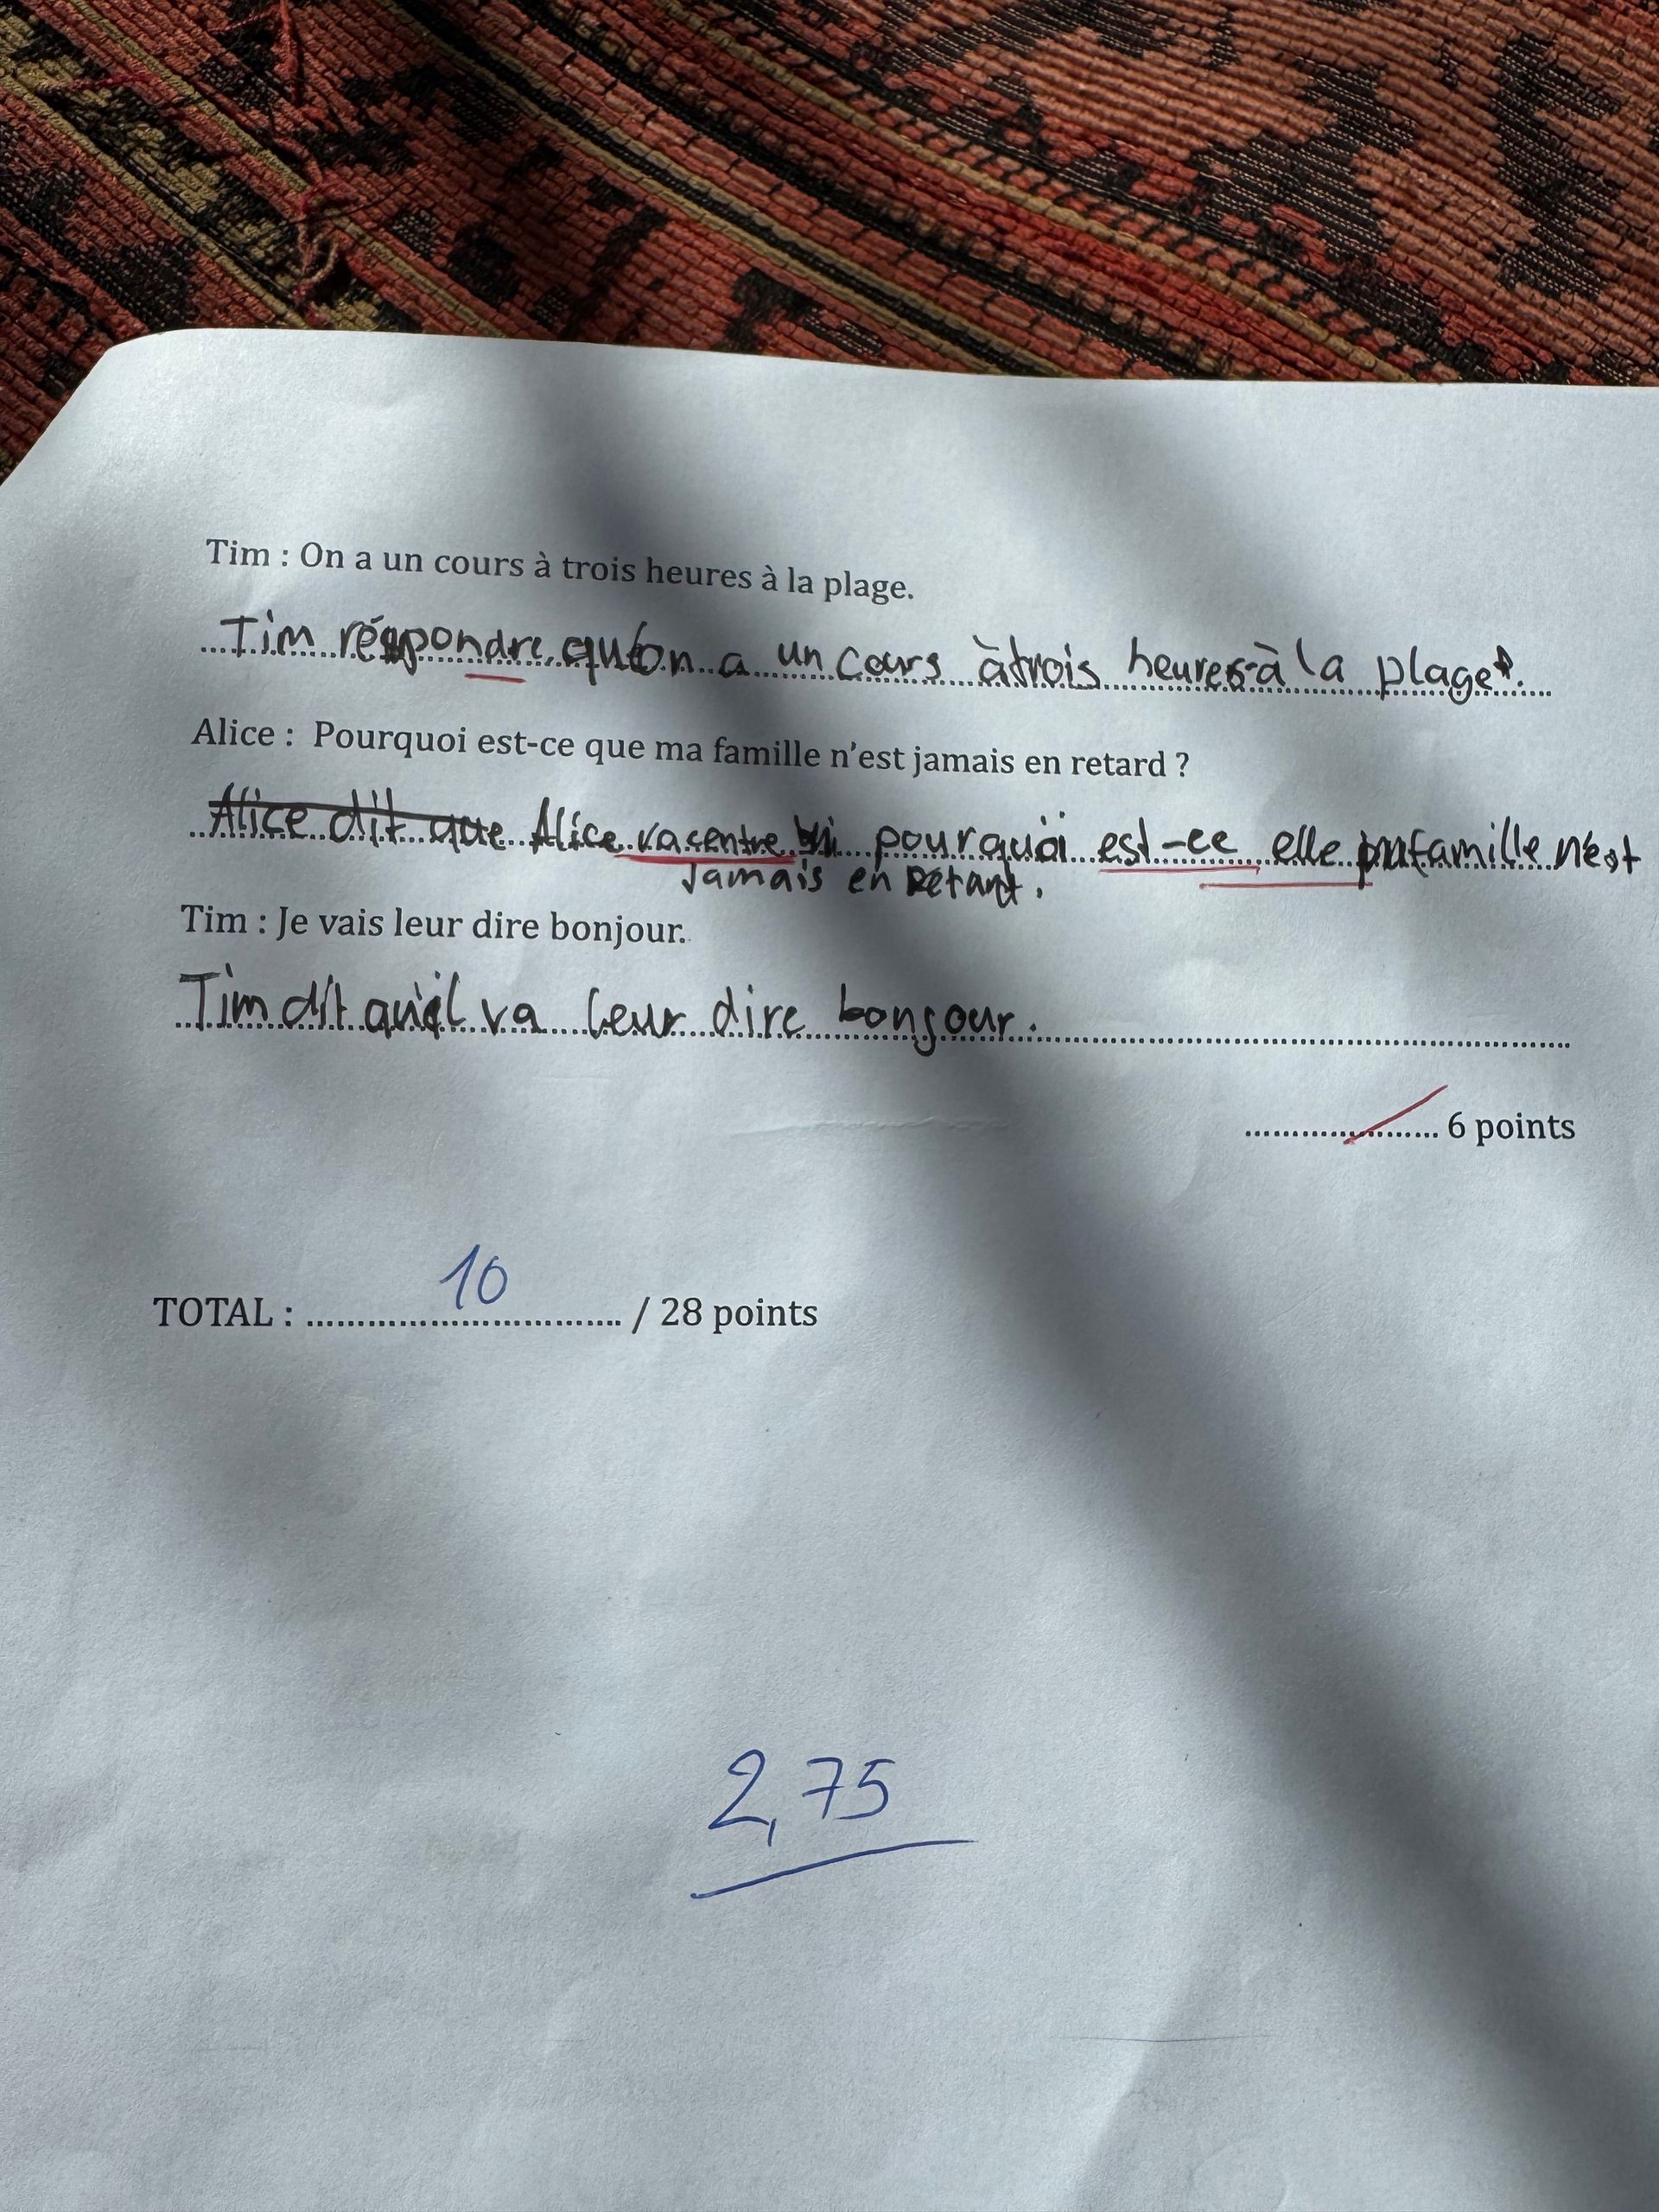 Tim : On a un cours à trois heures à la plage.
Tim répondre qu'on a un cours à trois heures à la plage.
Alice : Pourquoi est-ce que ma famille n'est jamais en retard ?
Alice dit que Alice pourquoi est-ce elle famille n'est
jamais en retard.
Tim : Je vais leur dire bonjour.
Tim dit qu'il va leur dire bonjour.
.................... 6 points
10
TOTAL : .................... / 28 points
2,75